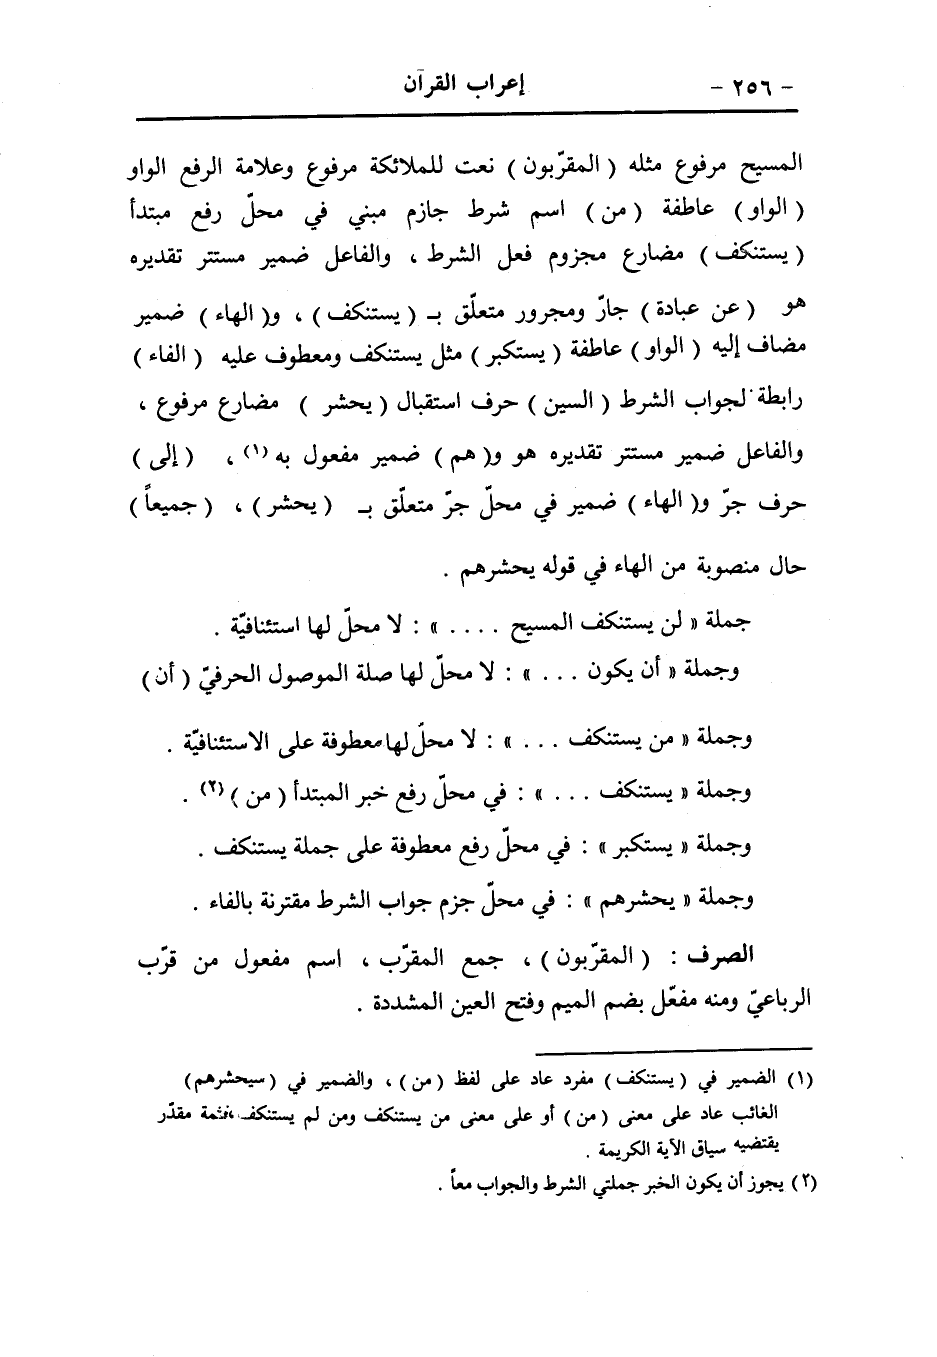 - ٢٥٦ - إعراب القرآن
المسيح مرفوع مثله ( المقرّبون ) نعت للملائكة مرفوع وعلامة الرفع الواو
( الواو ) عاطفة ( من ) اسم شرط جازم مبني في محلّ رفع مبتدأ
( يستنكف ) مضارع مجزوم فعل الشرط ، والفاعل ضمير مستتر تقديره
هو ( عن عبادة ) جارّ ومجرور متعلّق بـ ( يستنكف ) ، و( الهاء ) ضمير
مضاف إليه ( الواو ) عاطفة ( يستكبر ) مثل يستنكف ومعطوف عليه ( الفاء )
رابطة لجواب الشرط ( السين ) حرف استقبال ( يحشر ) مضارع مرفوع ،
والفاعل ضمير مستتر تقديره هو و( هم ) ضمير مفعول به (١) ، ( إلى )
حرف جرّ و( الهاء ) ضمير في محلّ جرّ متعلّق بـ ( يحشر ) ، ( جميعاً )
حال منصوبة من الهاء في قوله يحشرهم .
جملة « لن يستنكف المسيح .... » : لا محلّ لها استئنافيّة .
وجملة « أن يكون ... » : لا محلّ لها صلة الموصول الحرفيّ ( أن )
وجملة « من يستنكف ... » : لا محلّ لها معطوفة على الاستئنافيّة .
وجملة « يستنكف ... » : في محلّ رفع خبر المبتدأ ( من ) (٢) .
وجملة « يستكبر » : في محلّ رفع معطوفة على جملة يستنكف .
وجملة « يحشرهم » : في محلّ جزم جواب الشرط مقترنة بالفاء .
الصرف : ( المقرّبون ) ، جمع المقرّب ، اسم مفعول من قرّب
الرباعيّ ومنه مفعّل بضم الميم وفتح العين المشددة .
(١) الضمير في ( يستنكف ) مفرد عاد على لفظ ( من ) ، والضمير في ( سيحشرهم )
الغائب عاد على معنى ( من ) أو على معنى من يستنكف ومن لم يستنكف ، فثمة مقدّر
يقتضيه سياق الآية الكريمة .
(٢) يجوز أن يكون الخبر جملتي الشرط والجواب معاً .